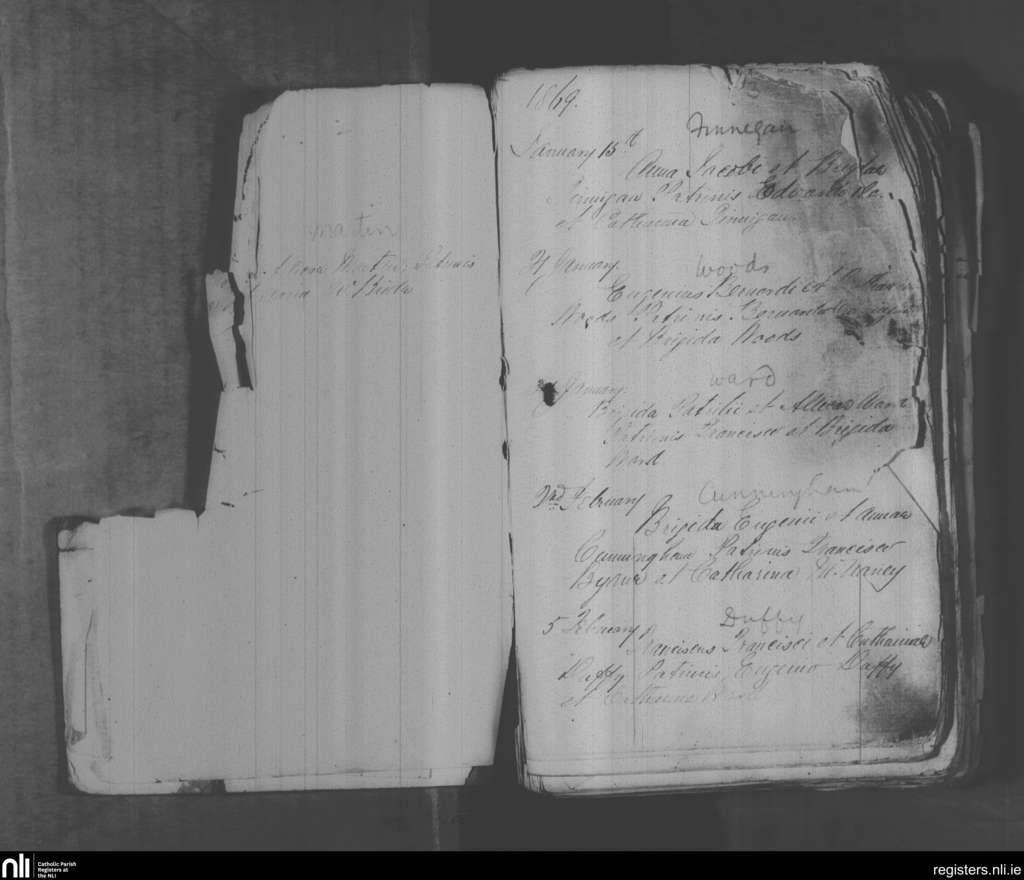 Martin
Martin Patrinis
1869.
Finnegan
January 15th
Anna Jacobi et Brigidae
Finnigan Patrinis Edvardo
et Catharina Finnigan
January
Woods
Eugenius Bernardi et
Woods Patrinis Bernardo
et Brigida Woods
January
Ward
Brigida Patricii et Ward
Patrinis Francisco et Brigida
Ward
2nd February
Cunningham
Brigida Eugenii et Annae
Cunningham Patrinis Francisco
Byrne et Catharina McNaney
5 February
Duffy
Franciscus Francisci et Catharinae
Duffy Patrinis, Eugenio Duffy
et Catharina
nli
Catholic Parish
Registers at
the NLI
registers.nli.ie